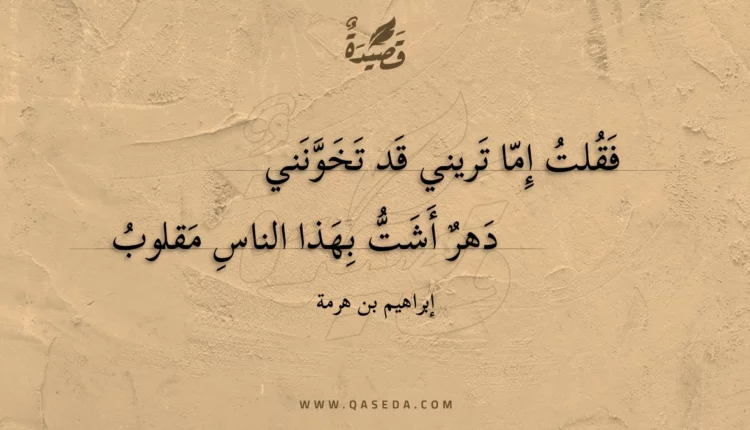 قَصِيدَةٌ
فَقُلتُ إِمّا تَريني قَد تَخَوَّنَني
دَهرٌ أَشَتُّ بِهَذا الناسِ مَقلوبُ
إبراهيم بن هرمة
WWW.QASEDA.COM